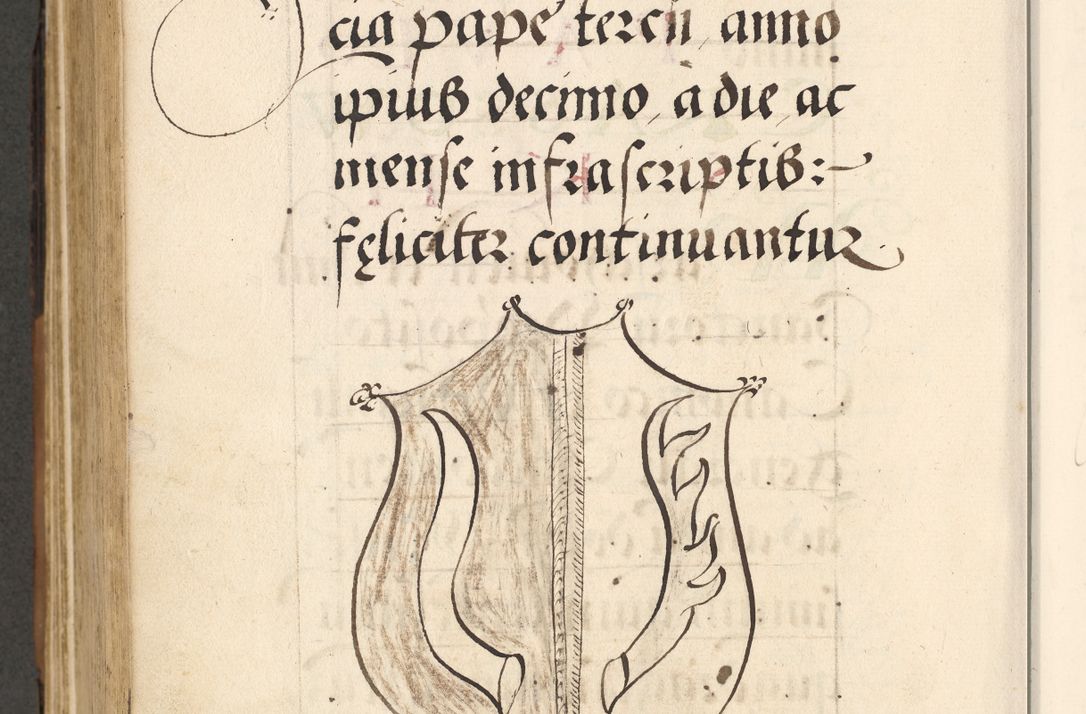 cia pape tercii, anno
ipius decimo, a die ac
mense infrascriptis:
fęliciter continuantur.